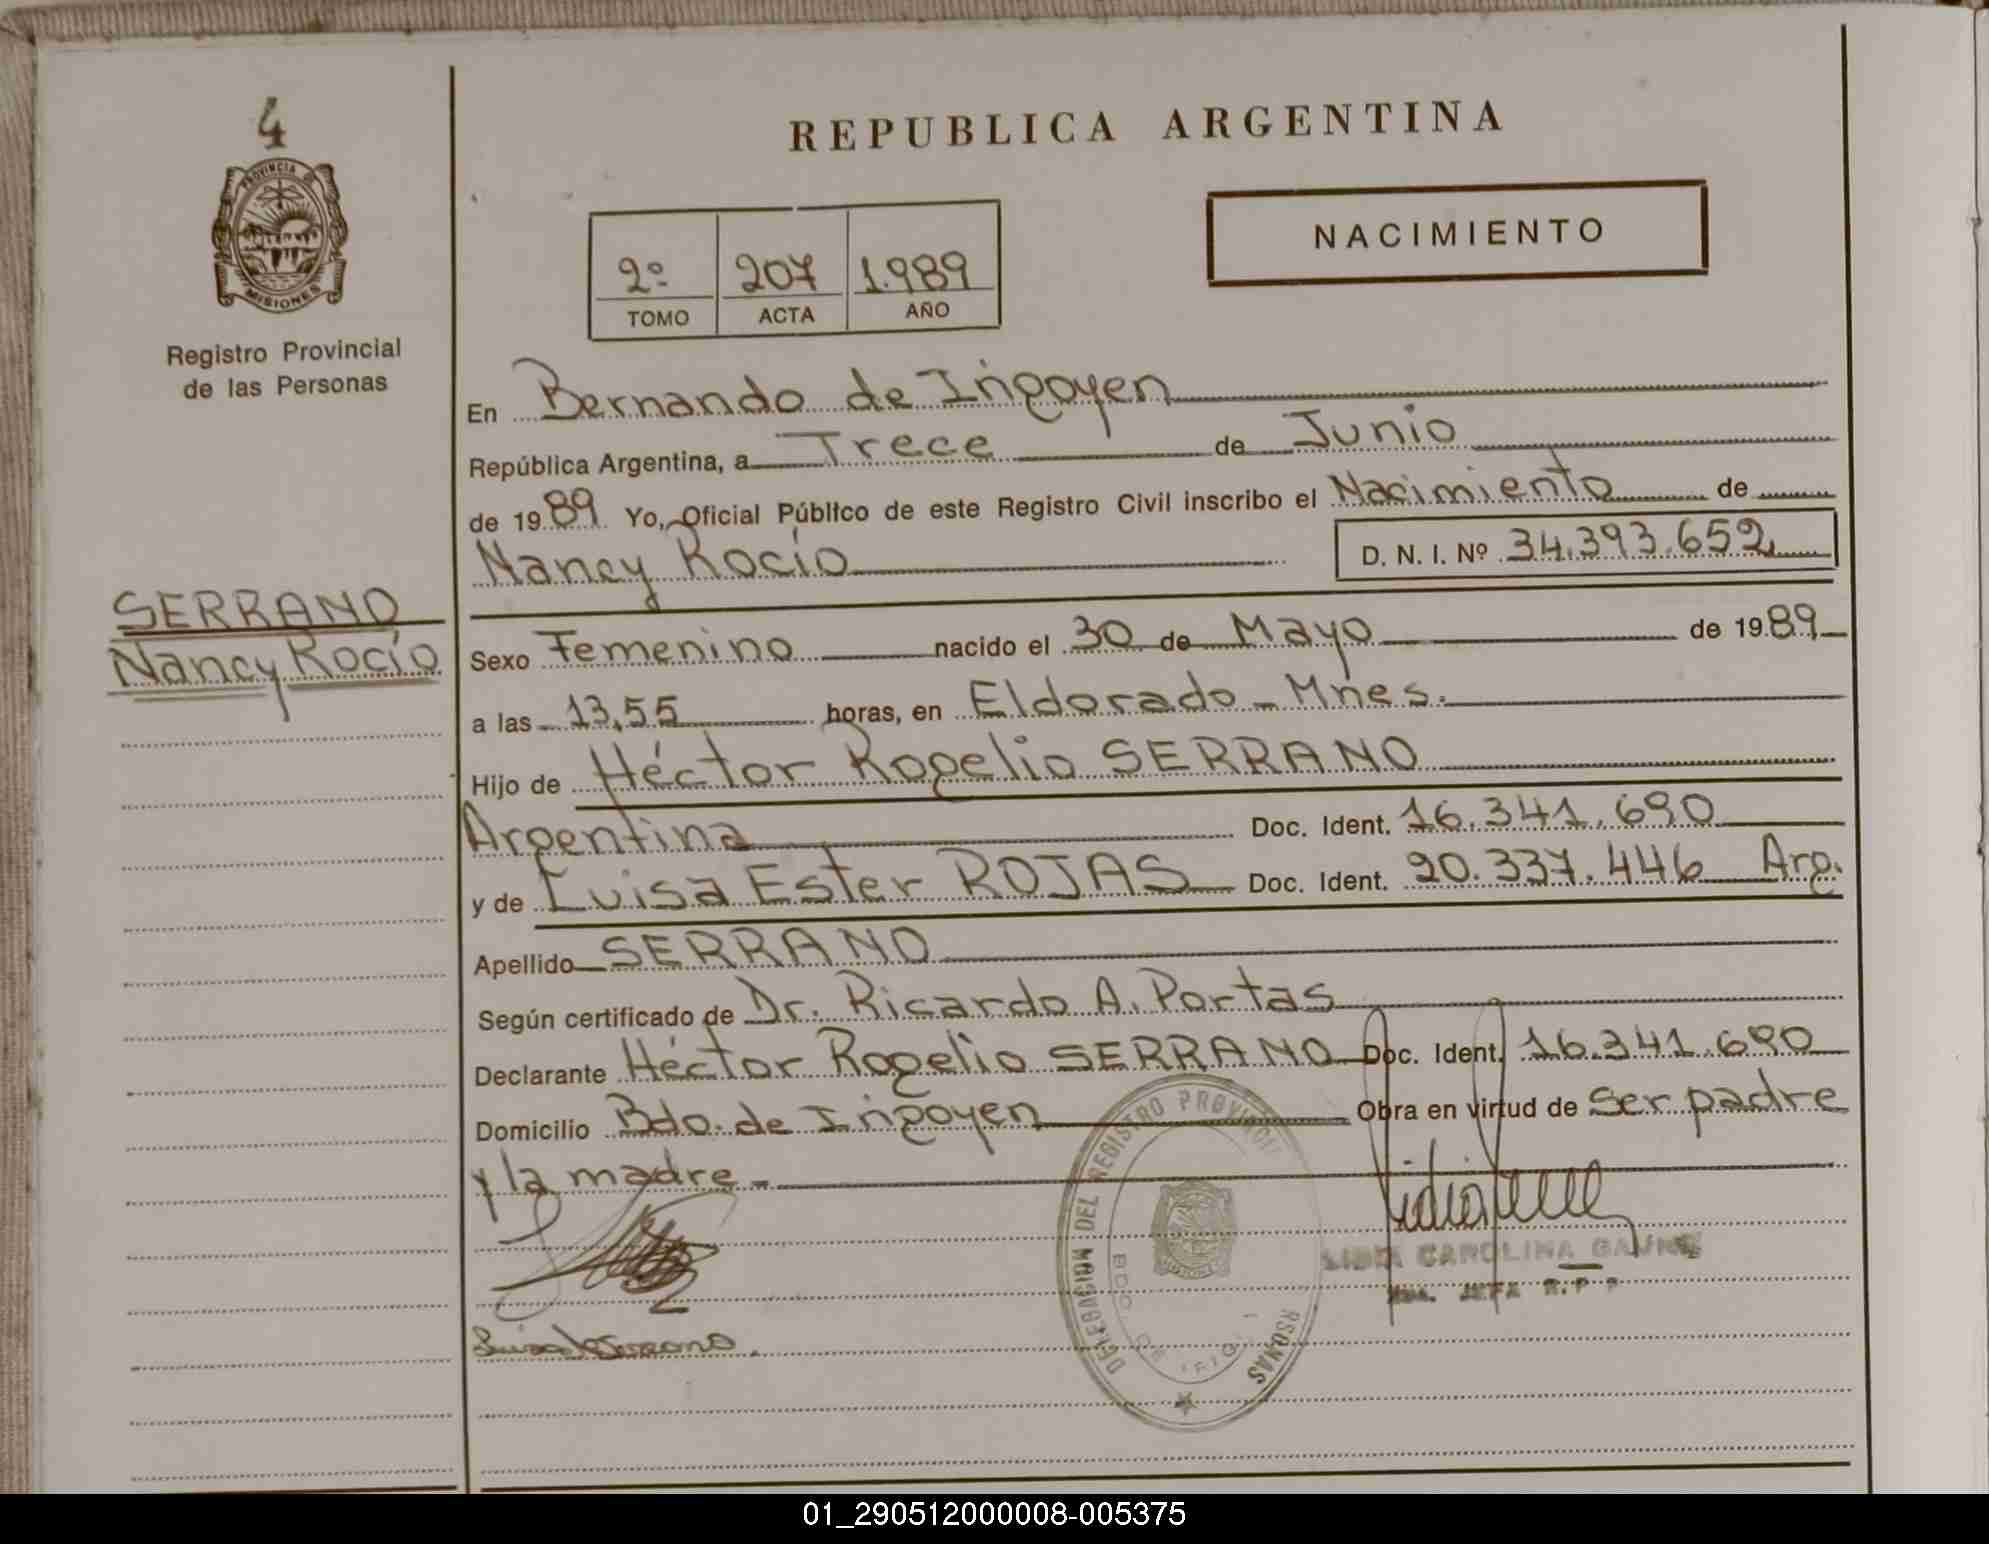 4
REPUBLICA ARGENTINA
PROVINCIA DE
MISIONES
NACIMIENTO
2º 207 1.989
TOMO ACTA AÑO
Registro Provincial
de las Personas
En Bernando de Irigoyen
República Argentina, a Trece de Junio
de 1989 Yo, Oficial Público de este Registro Civil inscribo el Nacimiento de
Nancy Rocío D. N. I. Nº 34.393.652
SERRANO
Nancy Rocío
Sexo Femenino nacido el 30 de Mayo de 1989
a las 13,55 horas, en Eldorado - Mnes.
Hijo de Héctor Rogelio SERRANO
Argentina Doc. Ident. 16.341.690
y de Luisa Ester ROJAS Doc. Ident. 20.337.446 Arg.
Apellido SERRANO
Según certificado de Dr. Ricardo A. Portas
Declarante Héctor Rogelio SERRANO Doc. Ident. 16.341.690
Domicilio Bdo. de Irigoyen Obra en virtud de Ser padre
y la madre -
DELEGACION DEL REGISTRO PROVINCIAL
BDO. DE IRIGOY
LIDIA CAROLINA
JEFA R.P.P
Luisa de Serrano.
01_290512000008-005375